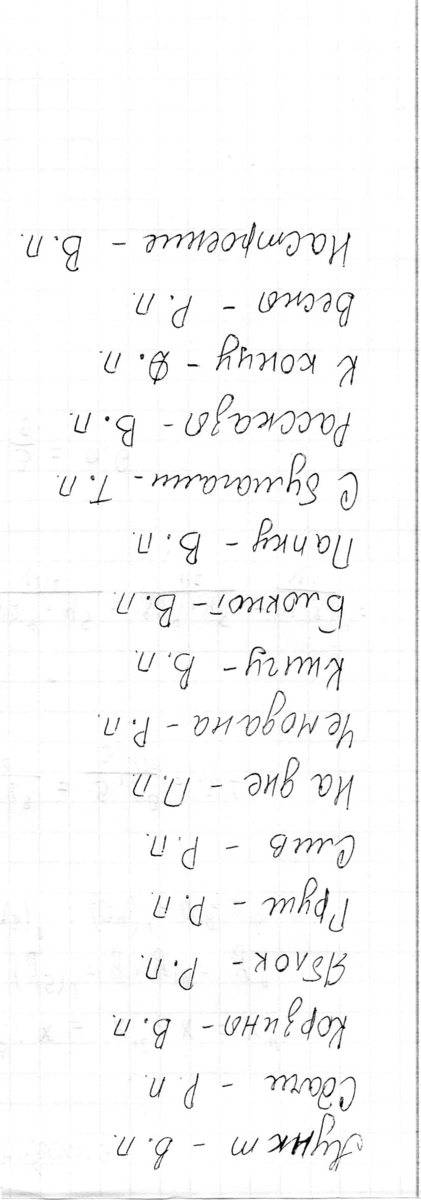 Пункт - В.п.
Сдачи - Р.п.
Корзина - В.п.
Яблок - Р.п.
Груш - Р.п.
Слив - Р.п.
На дне - П.п
Чемодана - Р.п.
Книгу - В.п.
Блокнот - В.п.
Папку - В.п.
С бумагами - Т.п.
Рассказа - В.п.
К концу - Д.п.
Весна - Р.п.
Настроение - В.п.